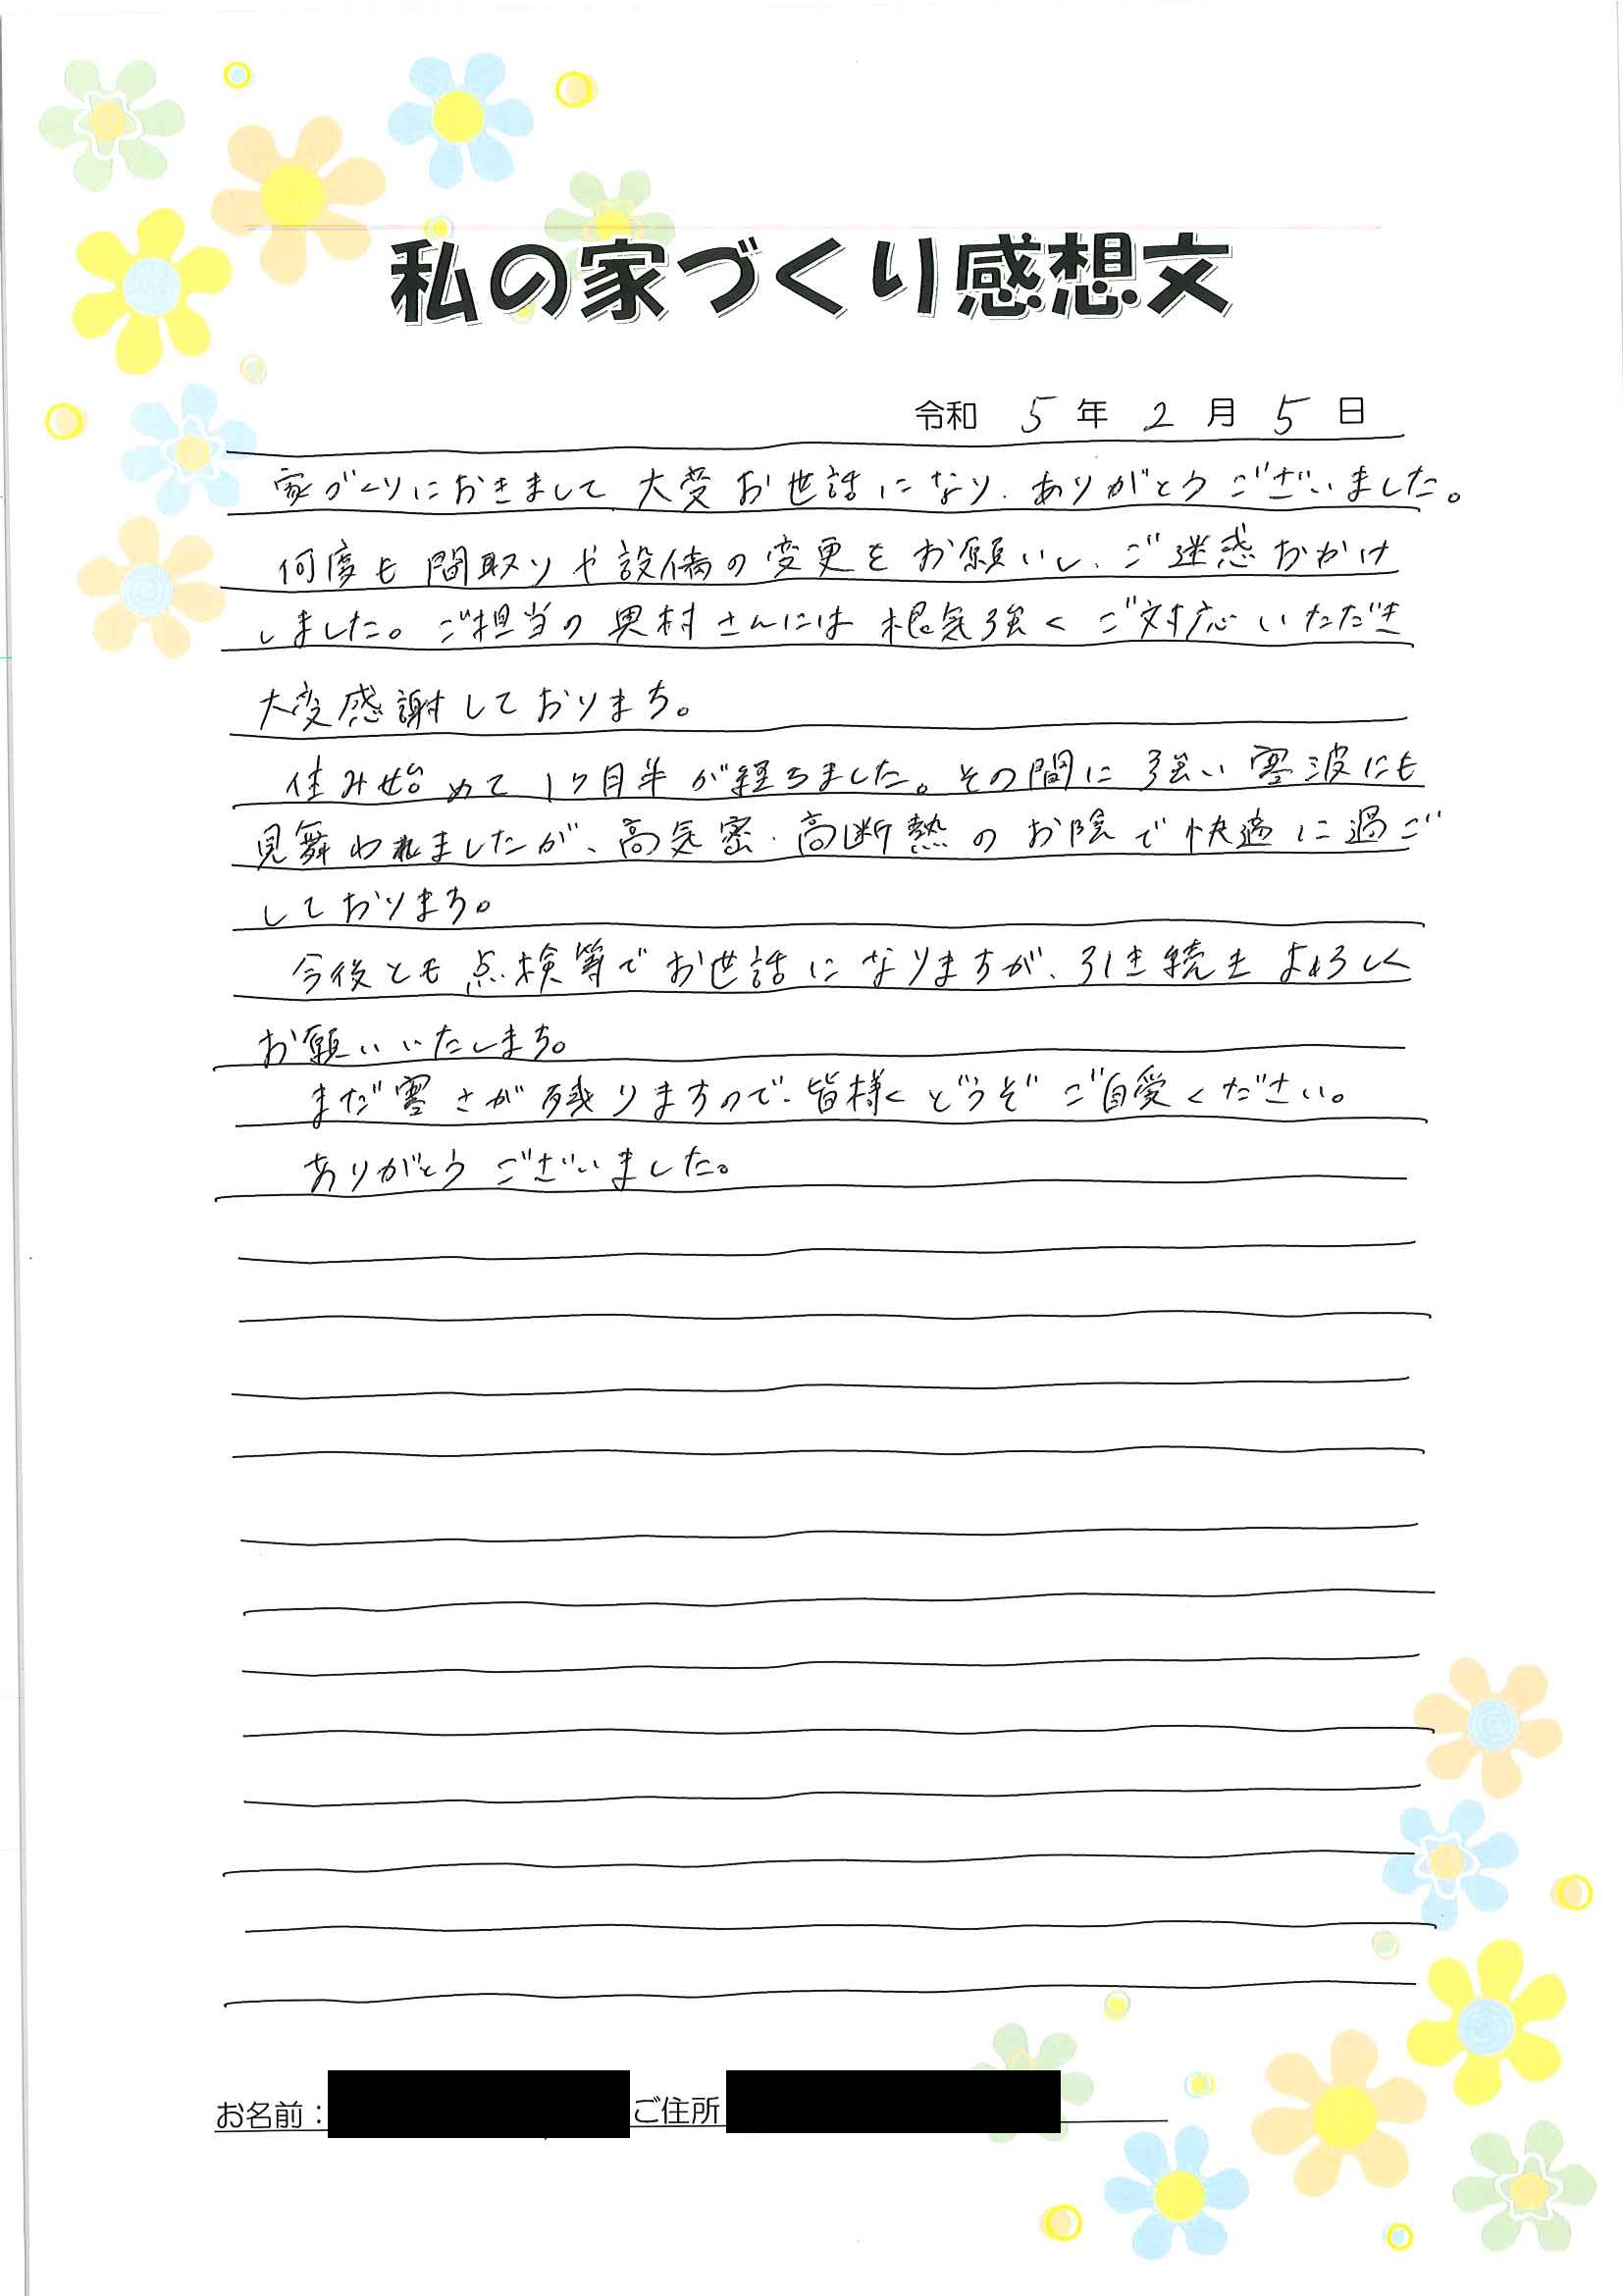 私の家づくり感想文
令和 5 年 2 月 5 日
家づくりにおきまして大変お世話になり、ありがとうございました。
何度も間取りや設備の変更をお願いし、ご迷惑おかけ
しました。ご担当の奥村さんには根気強くご対応いただき
大変感謝しております。
住み始めて1ヶ月半が経ちました。その間に強い寒波にも
見舞われましたが、高気密・高断熱のお陰で快適に過ご
しております。
今後とも点検等でお世話になりますが、引き続きよろしく
お願いいたします。
まだ寒さが残りますので、皆様くどうぞご自愛ください。
ありがとうございました。
お名前： ご住所